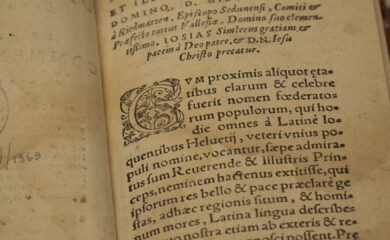 ET ILL
DOMINO, D. HIL
à Riedmatten, Episcopo Sedunensi, Comiti &
Præfecto totius Vallesiæ, Domino suo clemen-
tissimo, IOSIAS Simlerus gratiam &
pacem à Deo patre, & D.N. Iesu
Christo precatur.
CVM proximis aliquot eta-
tibus clarum & celebre
fuerit nomen fœderato-
rum populorum, qui ho-
die omnes à Latinè lo-
quentibus Heluetij, veteri vnius po-
puli nomine, vocantur, sæpe admira-
tus sum Reuerende & Illustris Prin-
ceps, neminem hactenus extitisse, qui
ipsorum res bello & pace præclarè ge-
stas, adhæc regionis situm, & homi-
num mores, Latina lingua describe-
nostra etiam ab exteris &
sci possent. Præ
/1363